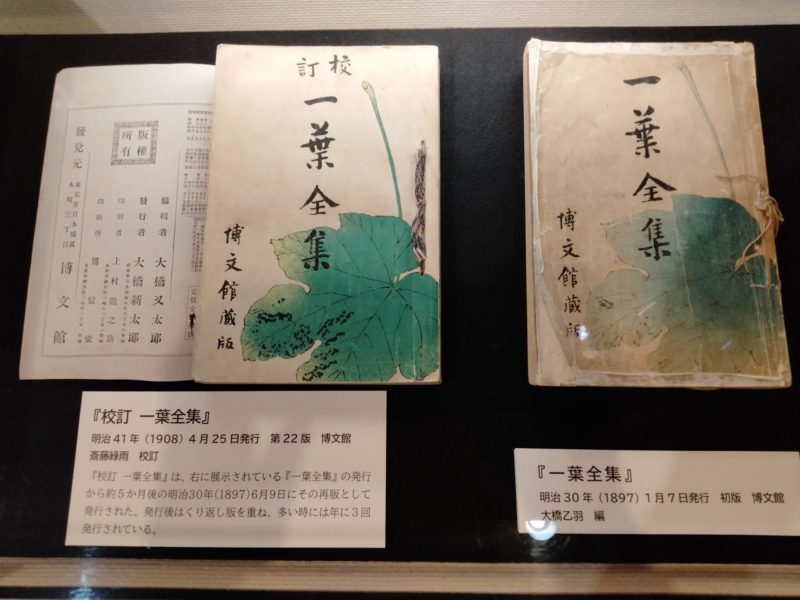 版権
所有
編輯者 大橋又太郎
發行者 大橋新太郎
印刷者 上村龍之助
印刷所 博信堂
發兌元 東京市日本橋區本町三丁目 博文館
校訂
一葉全集
博文館蔵版
一葉全集
博文館蔵版
『校訂 一葉全集』
明治41年(1908)4月25日発行 第22版 博文館
斎藤緑雨 校訂
『校訂 一葉全集』は、右に展示されている『一葉全集』の発行
から約5か月後の明治30年(1897)6月9日にその再版として
発行された。発行後はくり返し版を重ね、多い時には年に3回
発行されている。
『一葉全集』
明治30年(1897)1月7日発行 初版 博文館
大橋乙羽 編